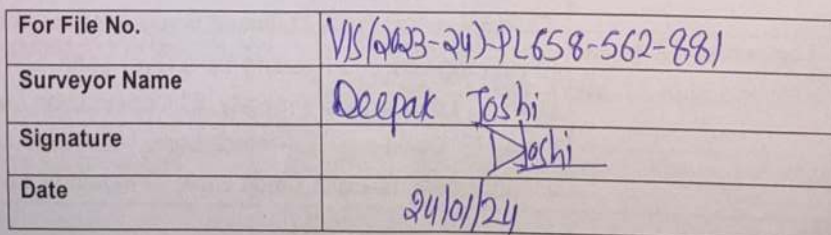 For File No. VIS(2023-24)-PL658-562-881
Surveyor Name Deepak Joshi
Signature DJoshi
Date 24/01/24